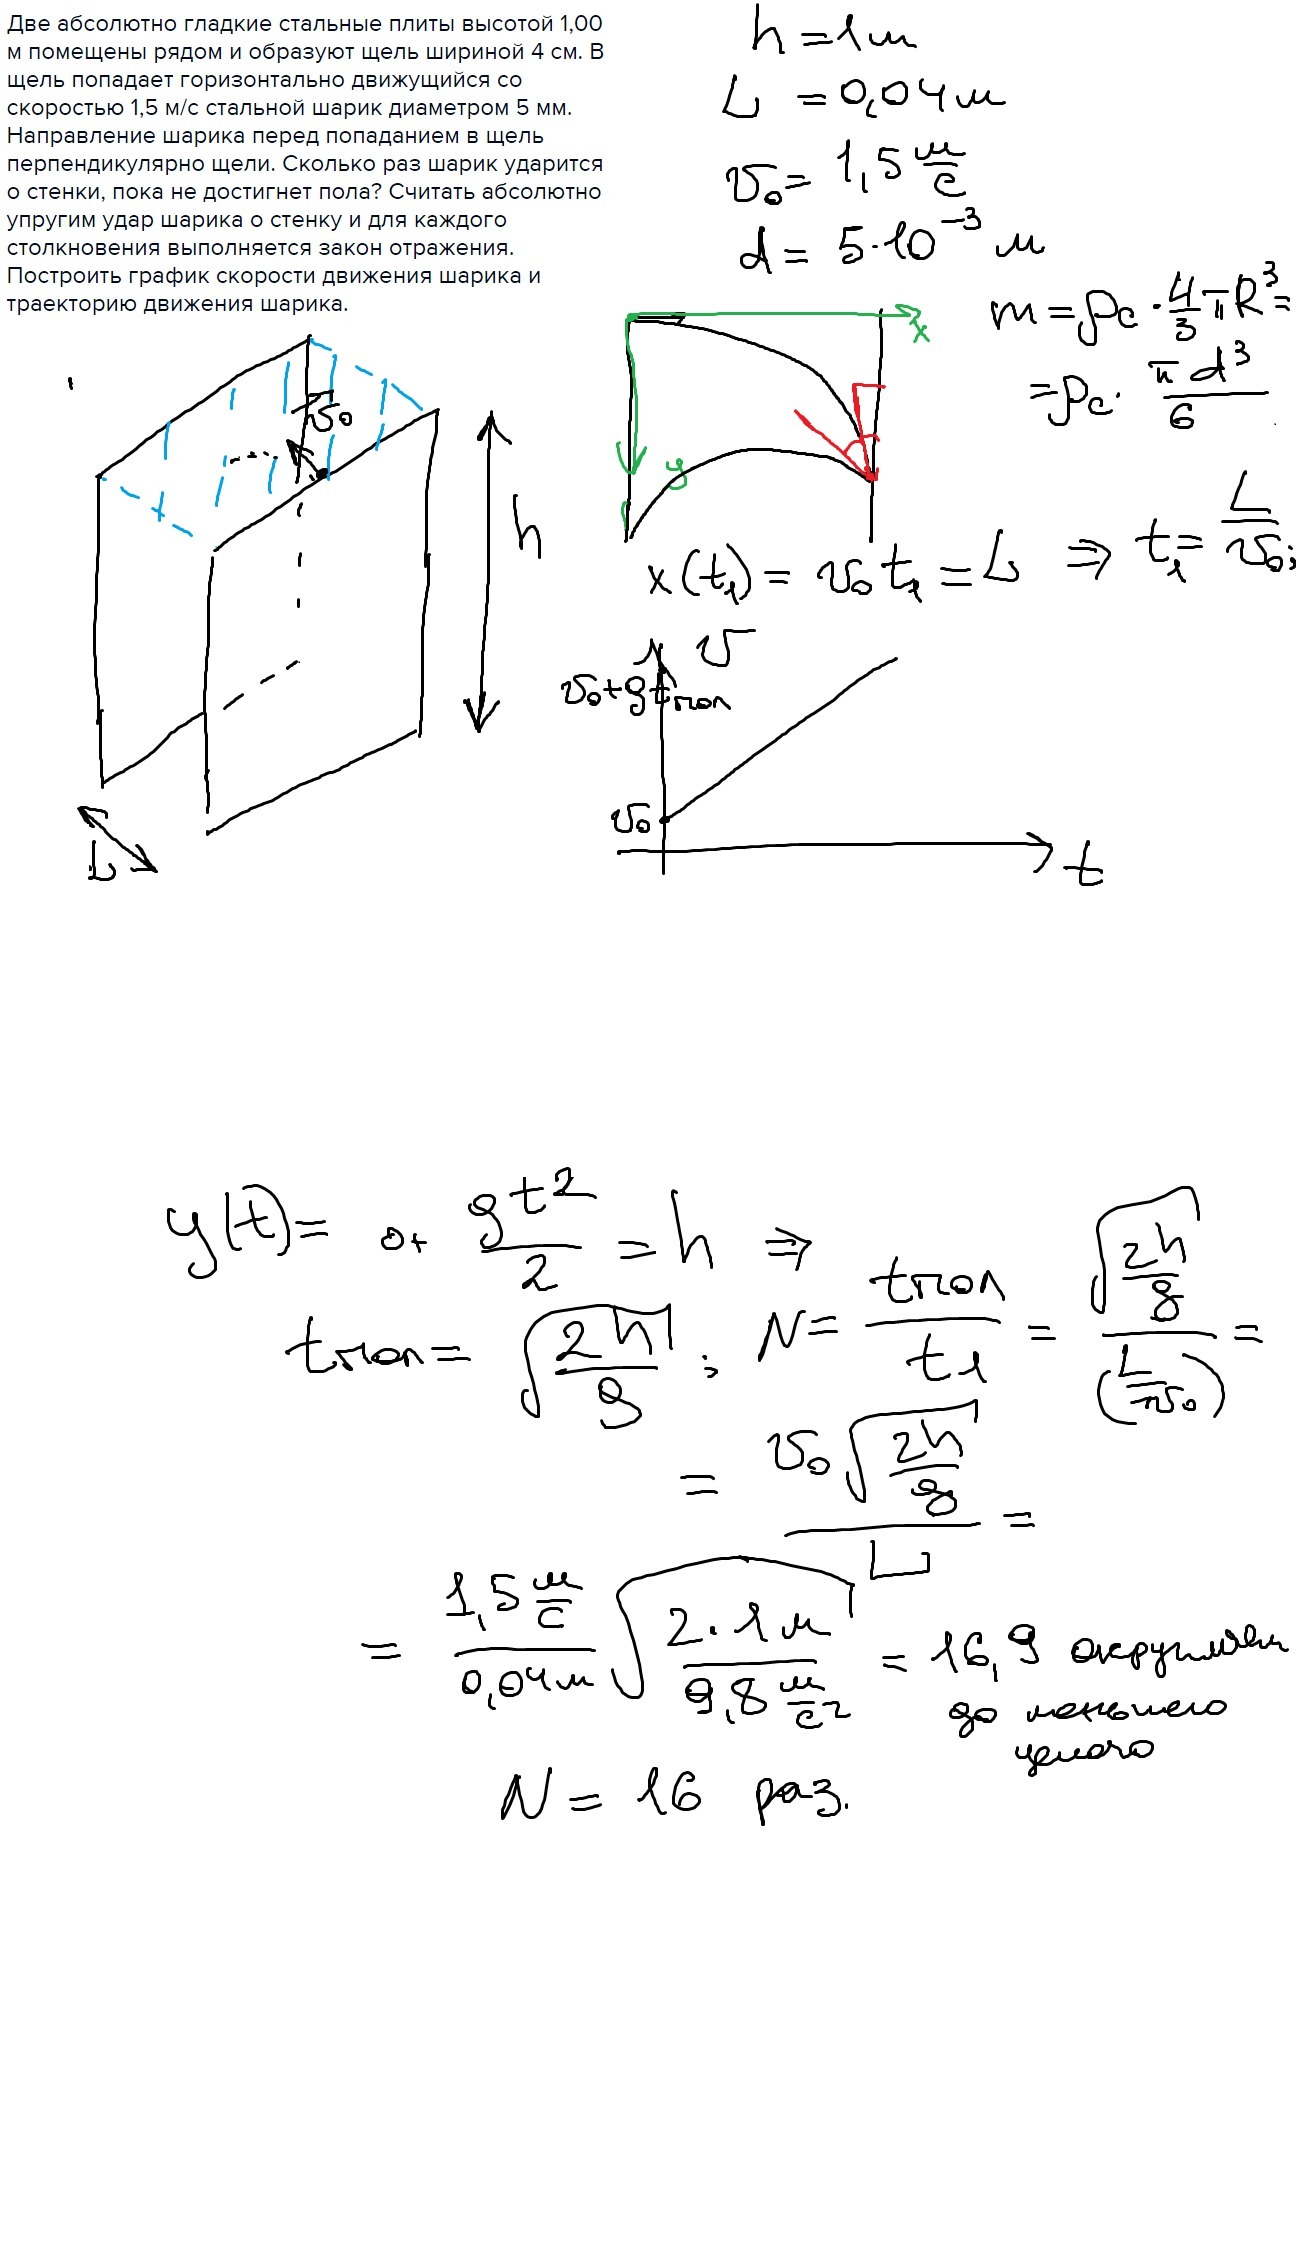 Две абсолютно гладкие стальные плиты высотой 1,00
м помещены рядом и образуют щель шириной 4 см. В
щель попадает горизонтально движущийся со
скоростью 1,5 м/с стальной шарик диаметром 5 мм.
Направление шарика перед попаданием в щель
перпендикулярно щели. Сколько раз шарик ударится
о стенки, пока не достигнет пола? Считать абсолютно
упругим удар шарика о стенку и для каждого
столкновения выполняется закон отражения.
Построить график скорости движения шарика и
траекторию движения шарика.
h = 1 м
L = 0,04 м
v₀ = 1,5 м/с
d = 5·10⁻³ м
m = ρc · 4/3 πR³ =
= ρc · πd³/6
v₀
h
L
x
y
x(t₁) = v₀t₁ = L ⇒ t₁ = L/v₀;
v
v₀+gtпол
v₀
t
y(t) = 0 + gt²/2 = h ⇒
tпол = √(2h/g) ; N = tпол/t₁ = √(2h/g)/(L/v₀) =
= v₀√(2h/g)/L =
= 1,5 м/с / 0,04м √(2·1м / 9,8 м/с²) = 16,9 округляем
до меньшего
целого
N = 16 раз.